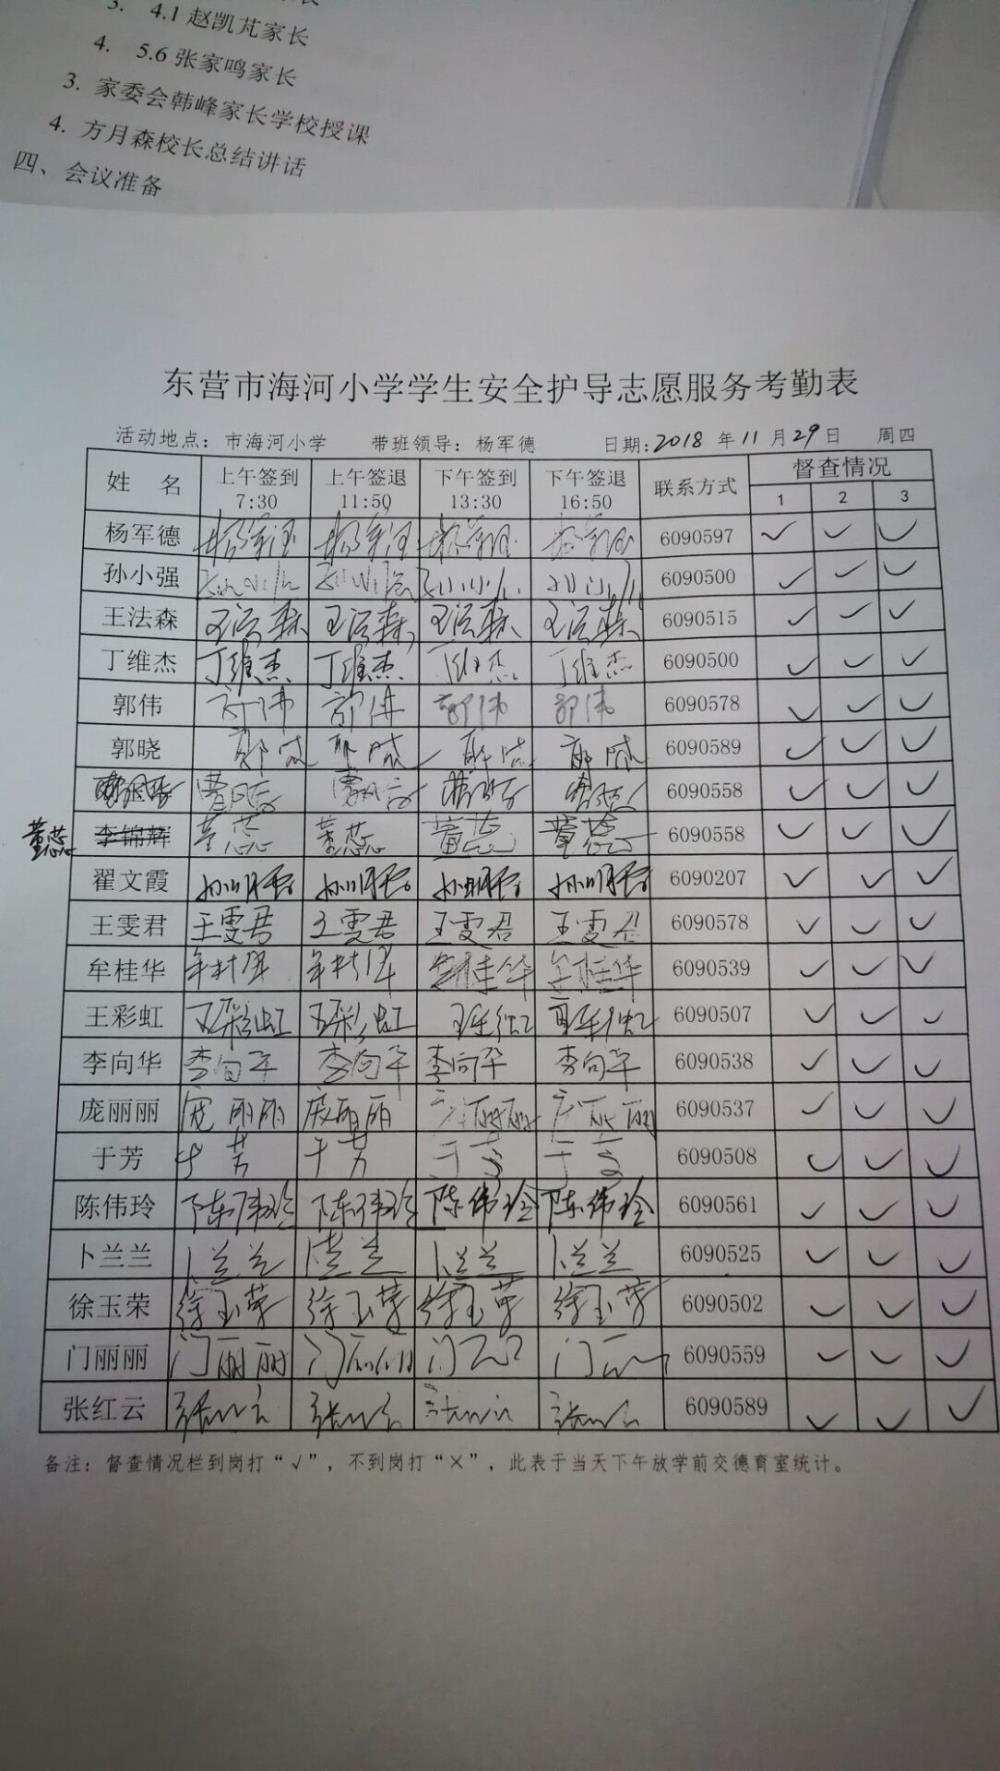 3. 4.1 赵凯芃家长
4. 5.6 张家鸣家长
3. 家委会韩峰家长学校授课
4. 方月森校长总结讲话
四、会议准备
东营市海河小学学生安全护导志愿服务考勤表
活动地点：市海河小学 带班领导：杨军德 日期：2018 年 11 月 29 日 周四
姓 名 上午签到 7:30 上午签退 11:50 下午签到 13:30 下午签退 16:50 联系方式 督查情况 1 2 3
杨军德 杨军德 杨军德 杨军德 杨军德 6090597 ✓ ✓ ✓
孙小强 6090500 ✓ ✓ ✓
王法森 王法森 王法森 王法森 王法森 6090515 ✓ ✓ ✓
丁维杰 丁维杰 丁维杰 丁维杰 丁维杰 6090500 ✓ ✓ ✓
郭伟 郭伟 郭伟 郭伟 郭伟 6090578 ✓ ✓ ✓
郭晓 6090589 ✓ ✓ ✓
6090558 ✓ ✓ ✓
董蕊 李锦辉 董蕊 董蕊 董蕊 董蕊 6090558 ✓ ✓ ✓
翟文霞 6090207 ✓ ✓ ✓
王雯君 王雯君 王雯君 王雯君 王雯君 6090578 ✓ ✓ ✓
牟桂华 牟桂华 牟桂华 牟桂华 牟桂华 6090539 ✓ ✓ ✓
王彩虹 王彩虹 王彩虹 王彩虹 王彩虹 6090507 ✓ ✓ ✓
李向华 李向华 李向华 李向华 李向华 6090538 ✓ ✓ ✓
庞丽丽 庞丽丽 庞丽丽 庞丽丽 庞丽丽 6090537 ✓ ✓ ✓
于芳 于芳 于芳 于芳 于芳 6090508 ✓ ✓ ✓
陈伟玲 陈伟玲 陈伟玲 陈伟玲 陈伟玲 6090561 ✓ ✓ ✓
卜兰兰 卜兰兰 卜兰兰 卜兰兰 卜兰兰 6090525 ✓ ✓ ✓
徐玉荣 徐玉荣 徐玉荣 徐玉荣 徐玉荣 6090502 ✓ ✓ ✓
门丽丽 门丽丽 门丽丽 6090559 ✓ ✓ ✓
张红云 张红云 张红云 张红云 张红云 6090589 ✓ ✓ ✓
备注：督查情况栏到岗打“√”，不到岗打“×”，此表于当天下午放学前交德育室统计。